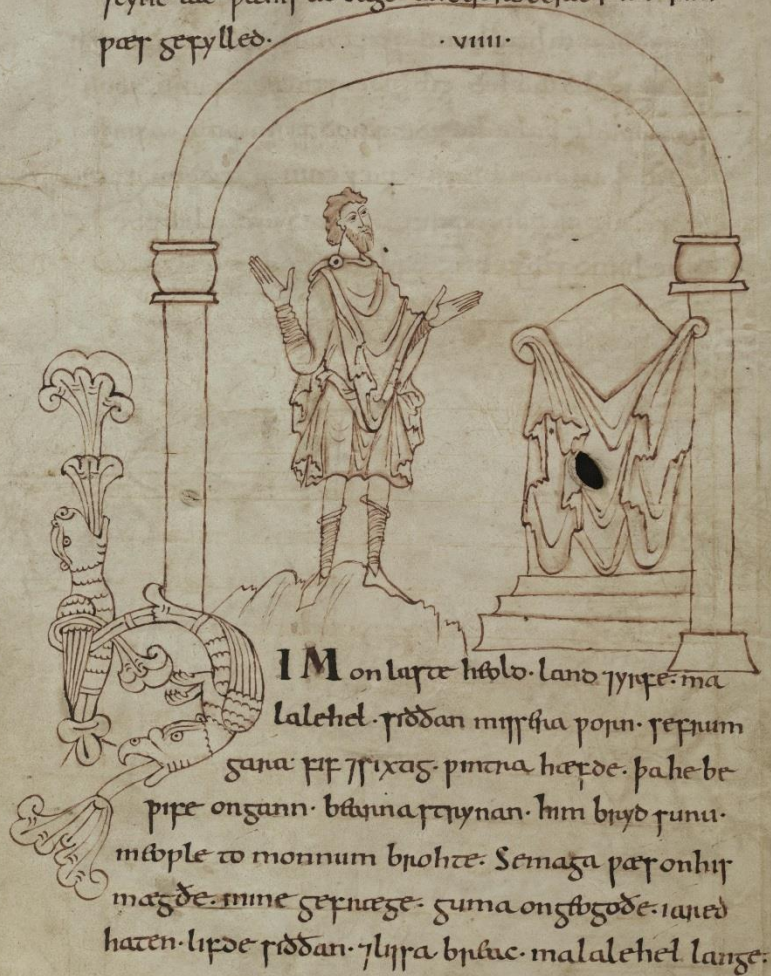 ƿæs gefylled. · VIIII ·
HIM on laste heold· land ⁊yrfe· ma
lalehel· siððan missera ƿorn· sefrum
gara fif ⁊sixtig· ƿintra hæfde· þahe be
ƿife ongann· bearna strynan· him bryd sunu·
meoƿle to monnum brohte. Semaga ƿæs onhis
mægðe. mine gefræge· guma ongeogoðe· iared
haten· lifde siððan· ⁊lissa breac· malalehel lange·